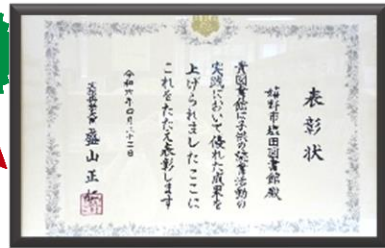 表彰状
嬉野市塩田図書館殿
貴図書館は子供の読書活動の
実践において優れた成果を
上げられましたここに
これをたたえ表彰します
令和六年四月二十二日
文部科学大臣 盛山正仁